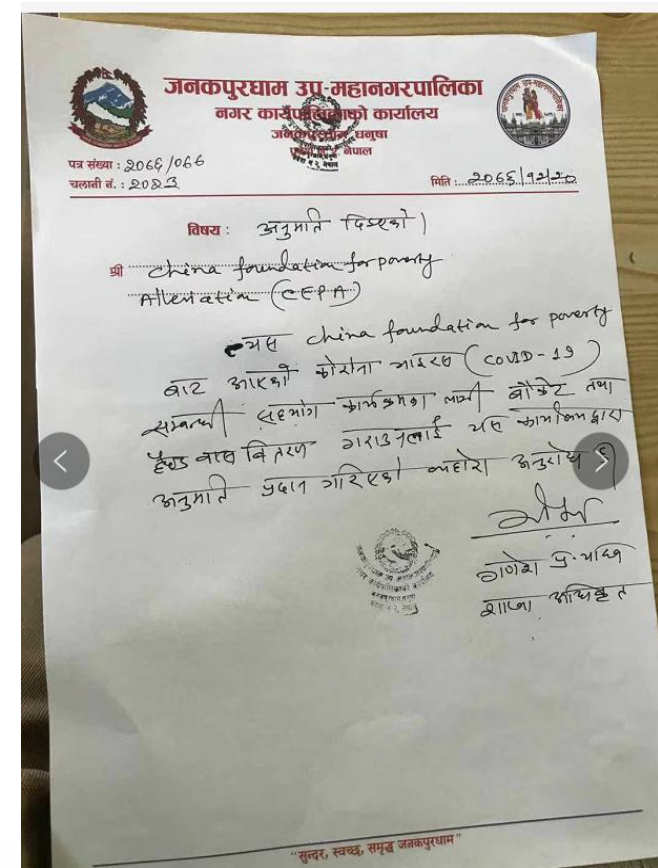 जनकपुरधाम उप-महानगरपालिका
नगर कार्यपालिकाको कार्यालय
जनकपुरधाम धनुषा
नेपाल
पत्र संख्या : २०७६/०७७
चलानी नं. : २०८३
मिति : २०७६/१२/२०
विषय : अनुमति दिएको।
श्री China foundation for poverty
Alleviation (CFPA)
यस China foundation for poverty
बाट आएको कोरोना भाइरस (COVID-19)
सम्बन्धी सहयोग कार्यक्रमका लागी बकेट तथा
हैण्ड वास वितरण गराउनलाई यस कार्यालयद्वारा
अनुमति प्रदान गरिएको व्यहोरा अनुरोध छ।
गणेश प्र.
शाखा अधिकृत
"सुन्दर, स्वच्छ, समृद्ध जनकपुरधाम"